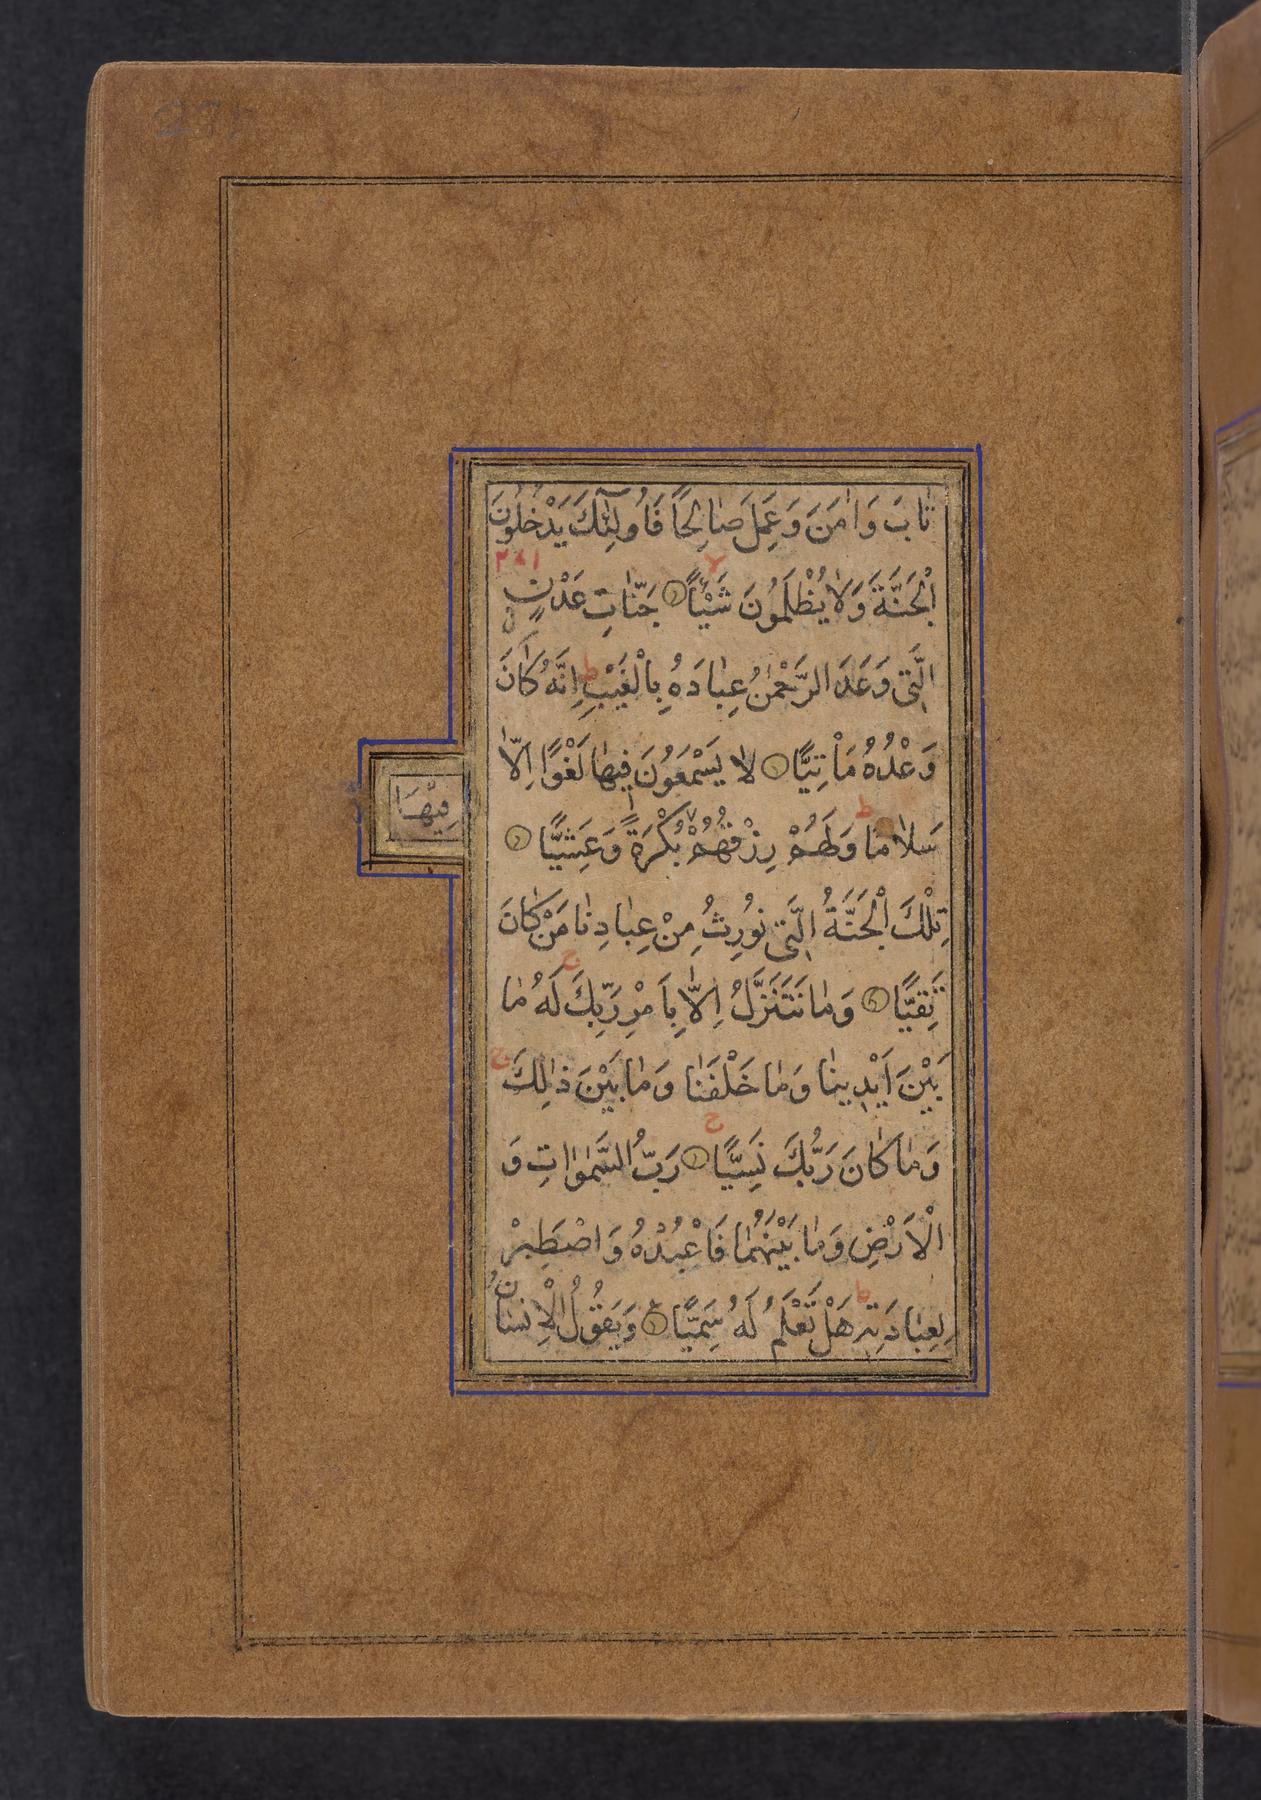 تَابَ وَاٰمَنَ وَعَمِلَ صَالِحًا فَاُولٰٓئِكَ يَدْخُلُونَ
الْجَنَّةَ وَلَا يُظْلَمُونَ شَيْئًا جَنَّاتِ عَدْنٍ
الَّتِى وَعَدَ الرَّحْمٰنُ عِبَادَهُ بِالْغَيْبِ اِنَّهُ كَانَ
وَعْدُهُ مَأْتِيًّا لَا يَسْمَعُونَ فِيهَا لَغْوًا اِلَّا
سَلَامًا وَلَهُمْ رِزْقُهُمْ بُكْرَةً وَعَشِيًّا
فِيْهَا
تِلْكَ الْجَنَّةُ الَّتِى نُورِثُ مِنْ عِبَادِنَا مَنْ كَانَ
تَقِيًّا وَمَا نَتَنَزَّلُ اِلَّا بِاَمْرِ رَبِّكَ لَهُ مَا
بَيْنَ اَيْدِينَا وَمَا خَلْفَنَا وَمَا بَيْنَ ذٰلِكَ
وَمَا كَانَ رَبُّكَ نَسِيًّا رَبُّ السَّمٰوَاتِ وَ
الْاَرْضِ وَمَا بَيْنَهُمَا فَاعْبُدْهُ وَاصْطَبِرْ
لِعِبَادَتِهِ هَلْ تَعْلَمُ لَهُ سَمِيًّا وَيَقُولُ الْاِنْسَانُ